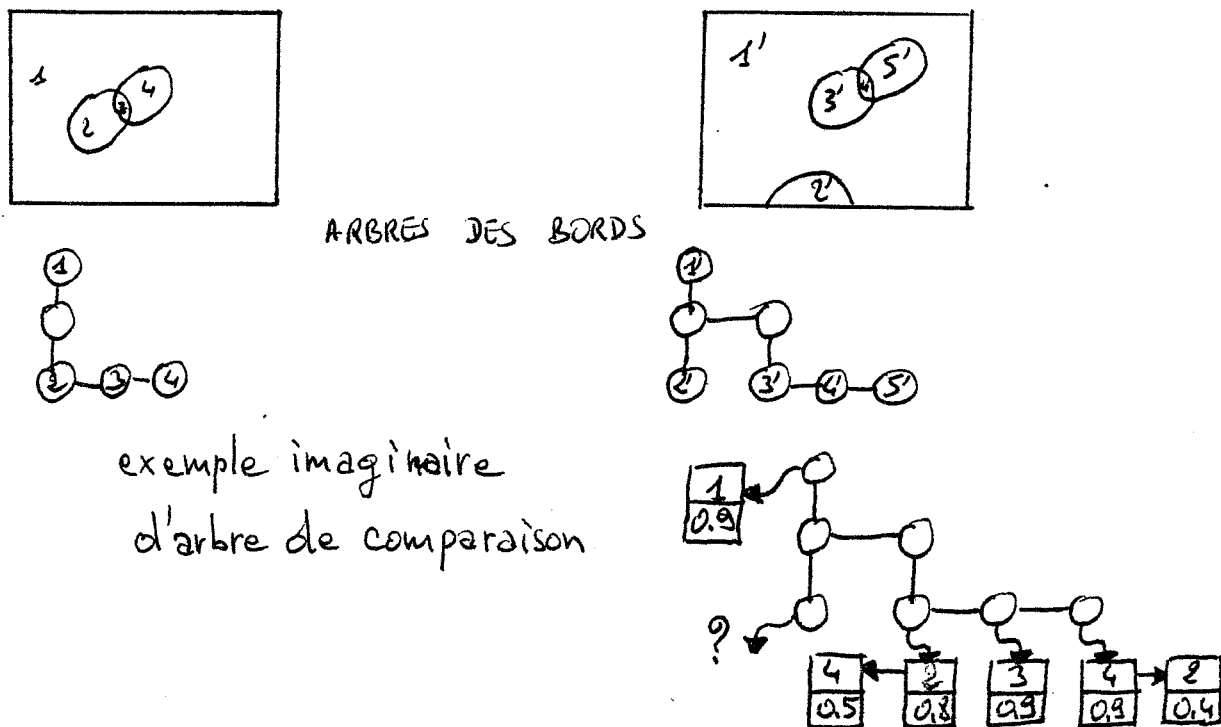 1
2 3 4
1'
3' 4' 5'
2'
ARBRES DES BORDS
1
2 3 4
1'
2' 3' 4' 5'
exemple imaginaire
d'arbre de comparaison
1
0.9
?
4 2 3 4 2
0.5 0.8 0.9 0.9 0.4